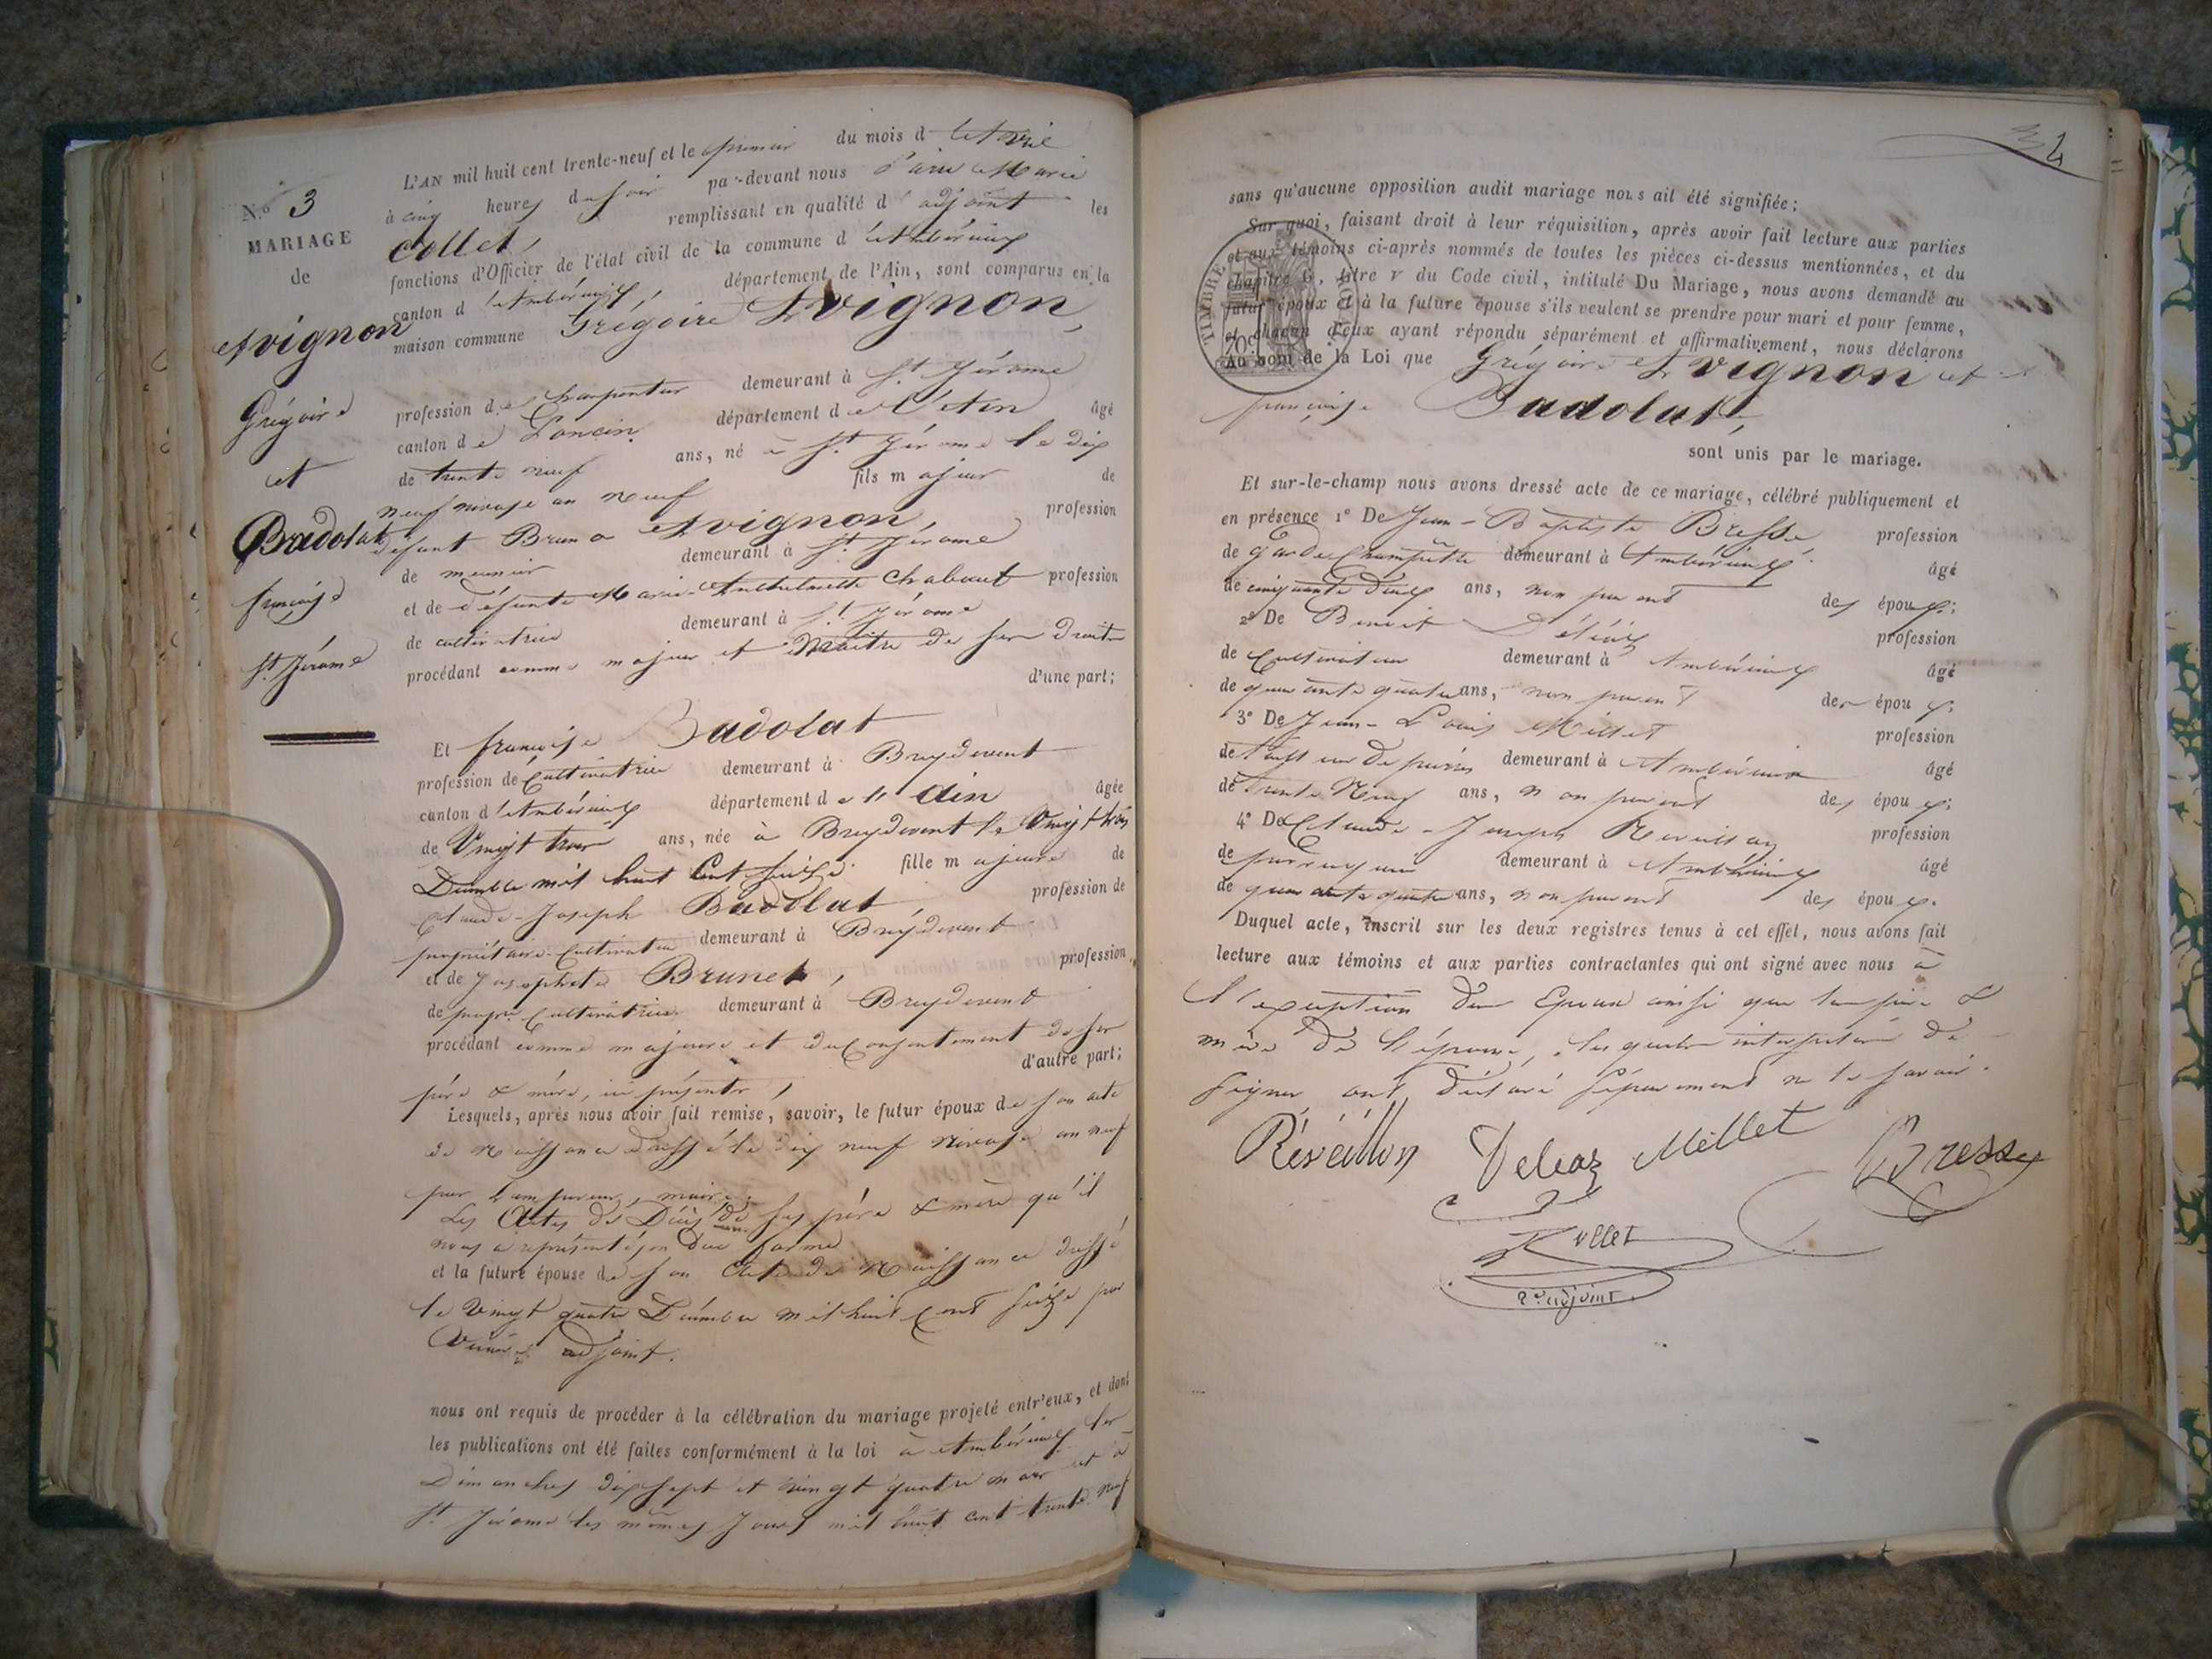 N.o 3
MARIAGE
de
Avignon
Grégoire
et
Badolat
françoise
St. Jérome
L'AN mil huit cent trente-neuf et le premier du mois d'Avril
à cinq heures du soir par-devant nous Marie
Collet, remplissant en qualité d'adjoint les
fonctions d'Officier de l'état civil de la commune d'Ambérieux
canton d'Ambérieux, département de l'Ain, sont comparus en la
maison commune Grégoire Avignon,
profession de charpentier demeurant à St. Jérome
canton de Poncin département de l'Ain âgé
de trente neuf ans, né à St. Jérome le dix
neuf nivose an neuf fils majeur de
défunt Bruno Avignon, profession
de meunier demeurant à St. Jérome
et de défunte Marie-Anthelmette Chabout profession
de cultivatrice demeurant à St. Jérome
procédant comme majeur et Maitre de ses droits
d'une part;
Et françoise Badolat
profession de Cultivatrice demeurant à Breydevent
canton d'Ambérieux département de l'Ain âgée
de Vingt trois ans, née à Breydevent le Vingt trois
Décembre mil huit Cent seize fille majeure de
Claude-Joseph Badolat profession de
propriétaire-Cultivateur demeurant à Breydevent
et de Josephte Brunet, profession
de propre Cultivatrice demeurant à Breydevent
procédant comme majeure et du Consentement de ses
d'autre part;
père & mère, ici présents,
Lesquels, après nous avoir fait remise, savoir, le futur époux de son acte
de Naissance dressé le dix neuf Nivose an neuf
par maire.
Les Actes de Décès de ses père & mère qu'il
nous a représentés en due forme
et la future épouse de son Acte de Naissance dressé
le Vingt quatre Décembre mil huit Cent seize par
adjoint.
nous ont requis de procéder à la célébration du mariage projeté entr'eux, et dont
les publications ont été faites conformément à la loi à Ambérieux les
Dimanches dix sept et vingt quatre mars et à
St. Jérome les mêmes Jours mil huit cent trente neuf
sans qu'aucune opposition audit mariage nous ait été signifiée;
Sur quoi, faisant droit à leur réquisition, après avoir fait lecture aux parties
et aux témoins ci-après nommés de toutes les pièces ci-dessus mentionnées, et du
chapitre 6, titre v du Code civil, intitulé Du Mariage, nous avons demandé au
futur époux et à la future épouse s'ils veulent se prendre pour mari et pour femme,
et chacun d'eux ayant répondu séparément et affirmativement, nous déclarons
Au nom de la Loi que Grégoire Avignon et
françoise Badolat,
sont unis par le mariage.
Et sur-le-champ nous avons dressé acte de ce mariage, célébré publiquement et
en présence 1° De Jean-Baptiste Bresse profession
de garde Champêtre demeurant à Ambérieux âgé
de cinquante deux ans, non parent des époux;
2° De Benoit Déléaz profession
de Cultivateur demeurant à Ambérieux âgé
de quarante quatre ans, non parent des époux;
3° De Jean-Louis Millet profession
de tailleur de pierres demeurant à Ambérieux âgé
de trente Neuf ans, non parent des époux;
4° De Claude-Joseph Réveillon profession
de perruquier demeurant à Ambérieux âgé
de quarante quatre ans, non parent des époux.
Duquel acte, inscrit sur les deux registres tenus à cet effet, nous avons fait
lecture aux témoins et aux parties contractantes qui ont signé avec nous à
l'exception des Epoux ainsi que les père &
mère de l'épouse, lesquels interpellés de
signer ont déclaré séparément ne le savoir.
Réveillon Deleaz Millet Bresse
Collet
2e adjoint
TIMBRE
70c